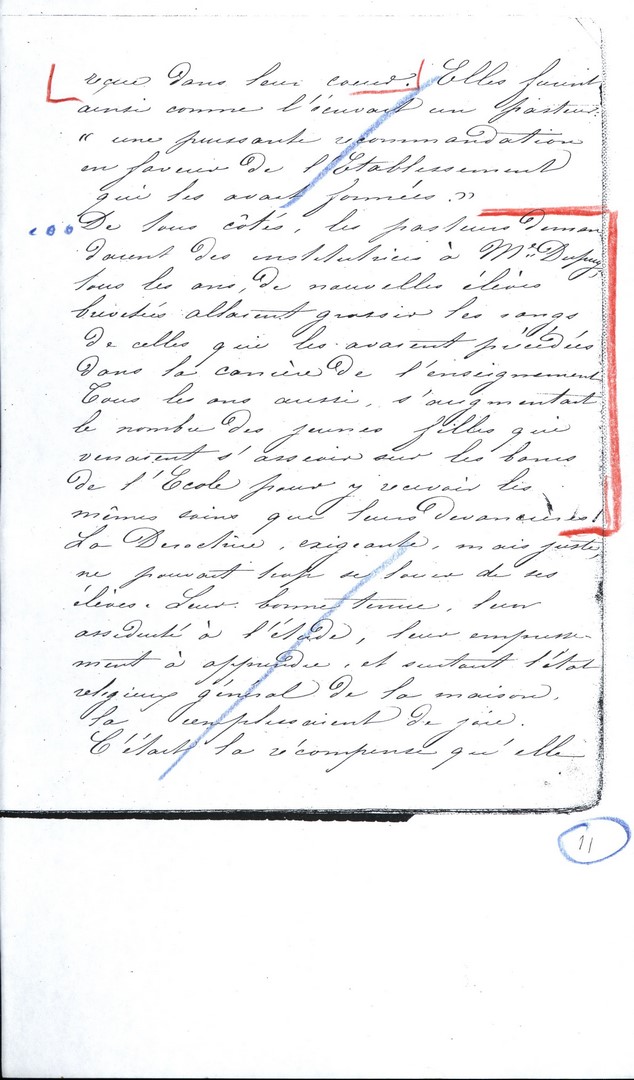 reçue dans leur coeur! Elles furent
ainsi comme l'écrivait un pasteur:
" une puissante recommandation
en faveur de l'Etablissement
qui les avait formées."
De tous côtés, les pasteurs deman
daient des institutrices à Me Dupuy,
tous les ans, de nouvelles élèves
brevetées allaient grossir les rangs
de celles qui les avaient précédées
dans la carrière de l'enseignement
Tous les ans aussi, s'augmentait
le nombre des jeunes filles qui
venaient s'asseoir sur les bancs
de l'Ecole pour y recevoir les
mêmes soins que leurs devancières!
La Directrice, exigeante, mais juste,
ne pouvait trop se louer de ses
élèves. Leur bonne tenue, leur
assiduité à l'étude, leur empresse-
ment à apprendre, et surtout l'état
religieux général de la maison,
la remplissaient de joie.
C'était la récompense qu'elle
11